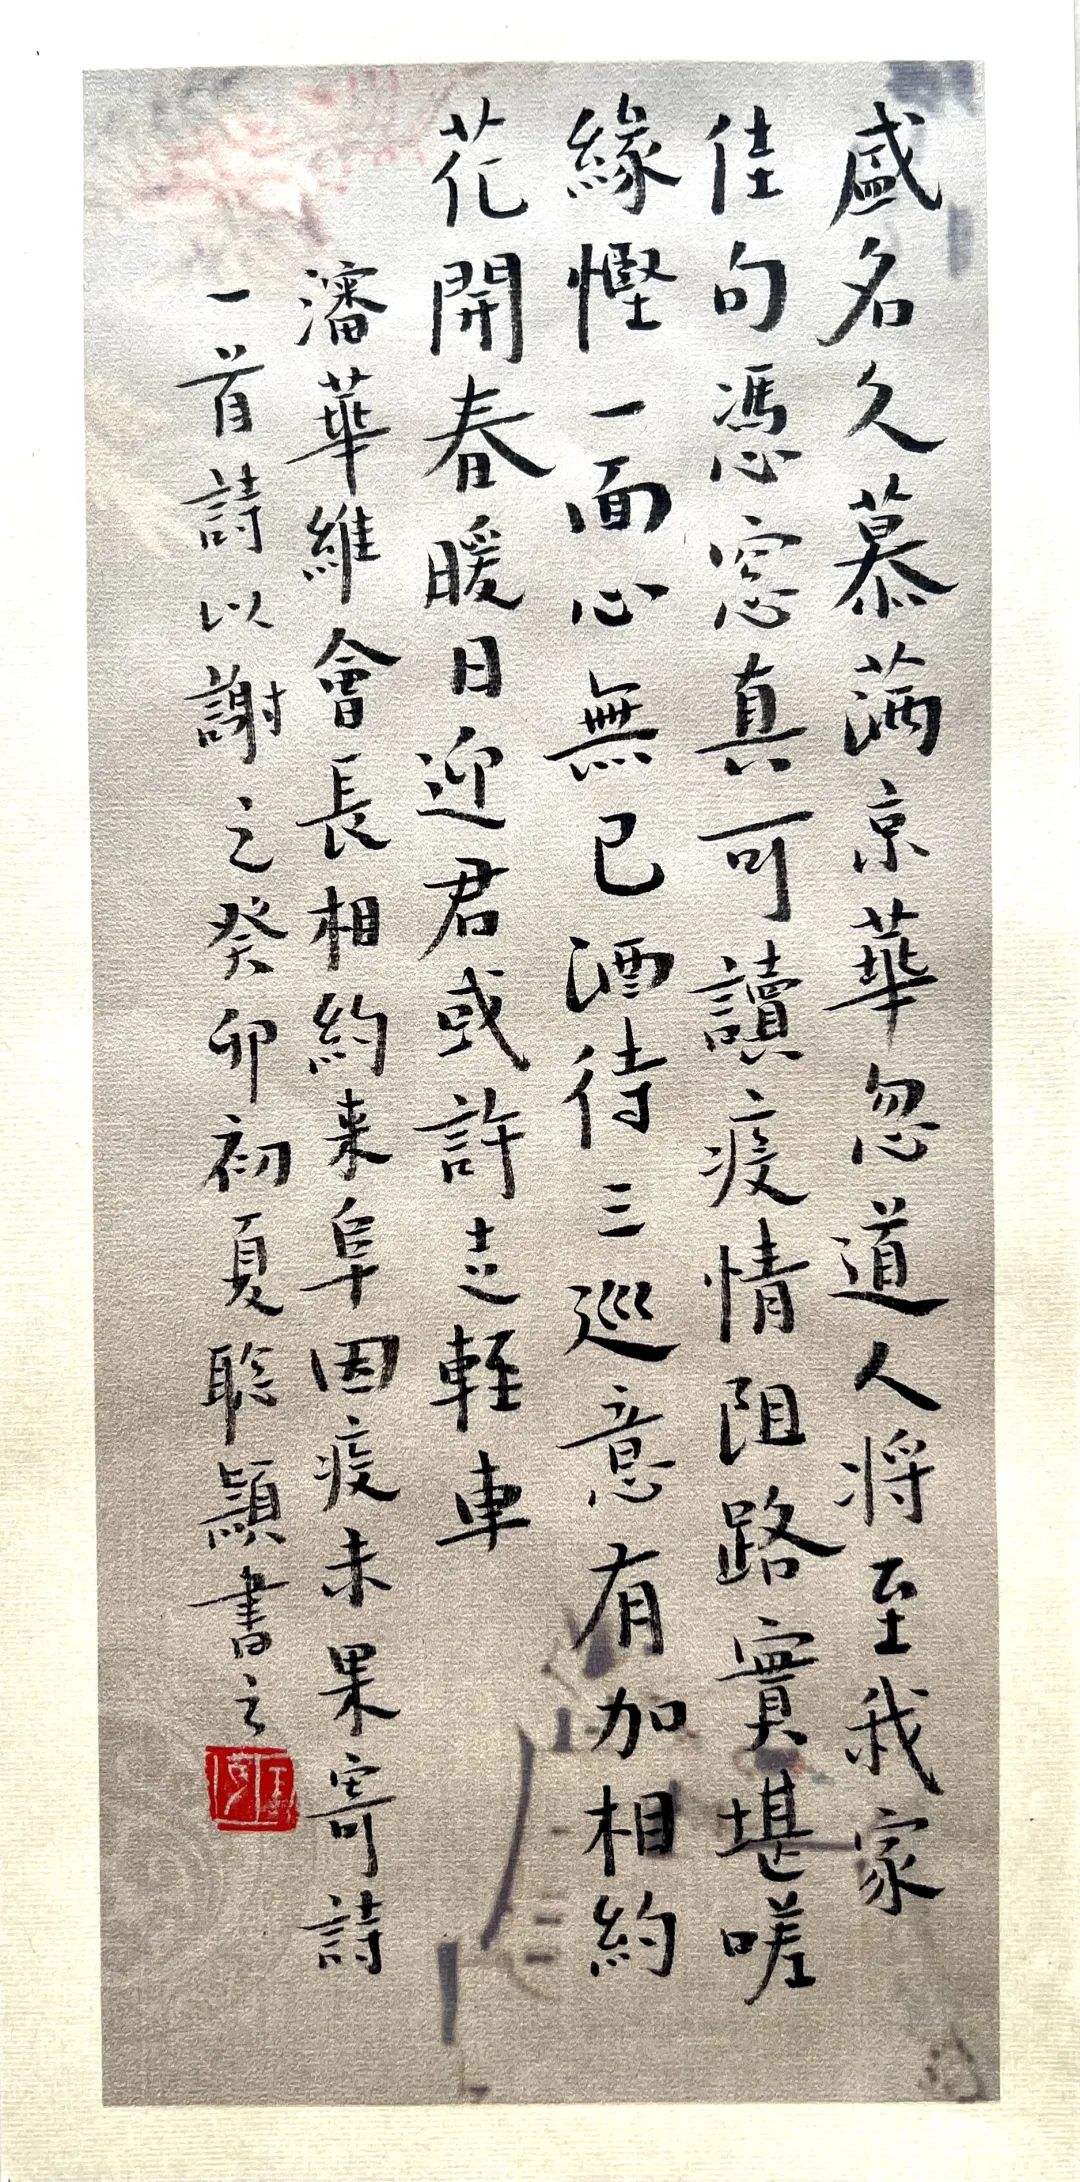 盛名久慕滿京華忽道人將至我家
佳句憑窓真可讀疫情阻路實堪嗟
緣慳一面心無已酒待三巡意有加相約
花開春暖日迎君或許走輕車
潘華維會長相約来阜因疫未果寄詩
一首詩以謝之癸卯初夏聡顥書之